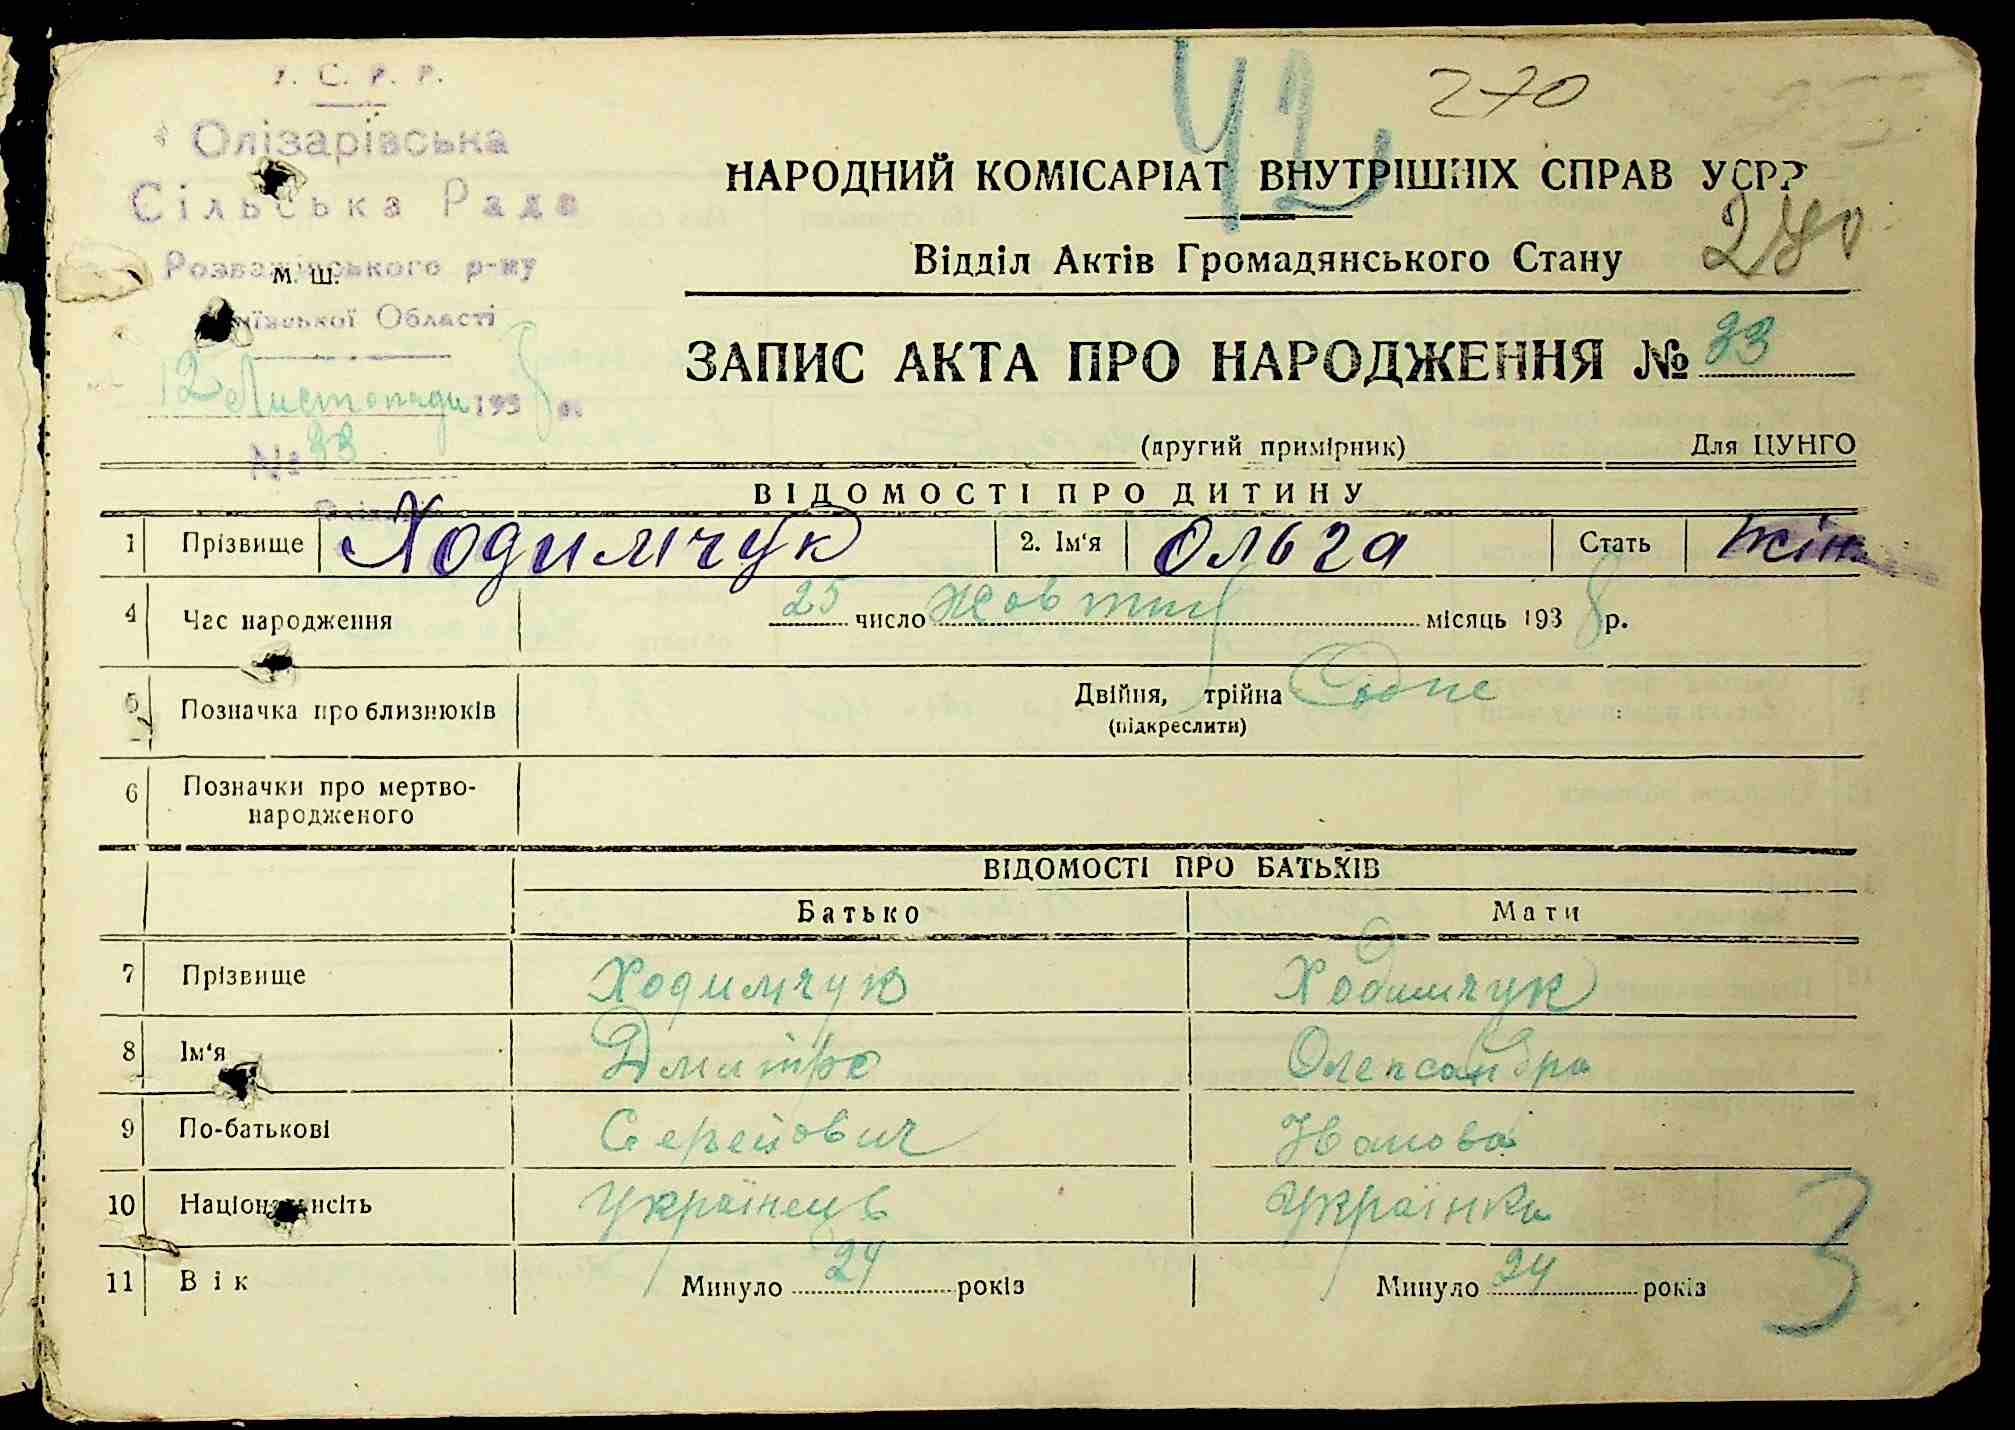 У. С. Р. Р.
Олізарівська
Сільська Рада
Розважівського р-ну
М. Ш.
Київської Області
12 Листопада 1938 р.
№ 33
42
270
НАРОДНИЙ КОМІСАРІАТ ВНУТРІШНІХ СПРАВ УСРР
280
Відділ Актів Громадянського Стану
ЗАПИС АКТА ПРО НАРОДЖЕННЯ № 33
(другий примірник) Для ЦУНГО
ВІДОМОСТІ ПРО ДИТИНУ
1 Прізвище Ходимчук 2. Ім'я Ольга Стать жін
4 Час народження 25 число Жовтня місяць 1938 р.
5 Позначка про близнюків Двійня, трійня Одне
(підкреслити)
6 Позначки про мертво-
народженого
ВІДОМОСТІ ПРО БАТЬКІВ
Батько Мати
7 Прізвище Ходимчук Ходимчук
8 Ім'я Дмитро Олександра
9 По-батькові Сергейович Іванова
10 Національність Українець Українка
11 Вік Минуло 24 років Минуло 24 років
3